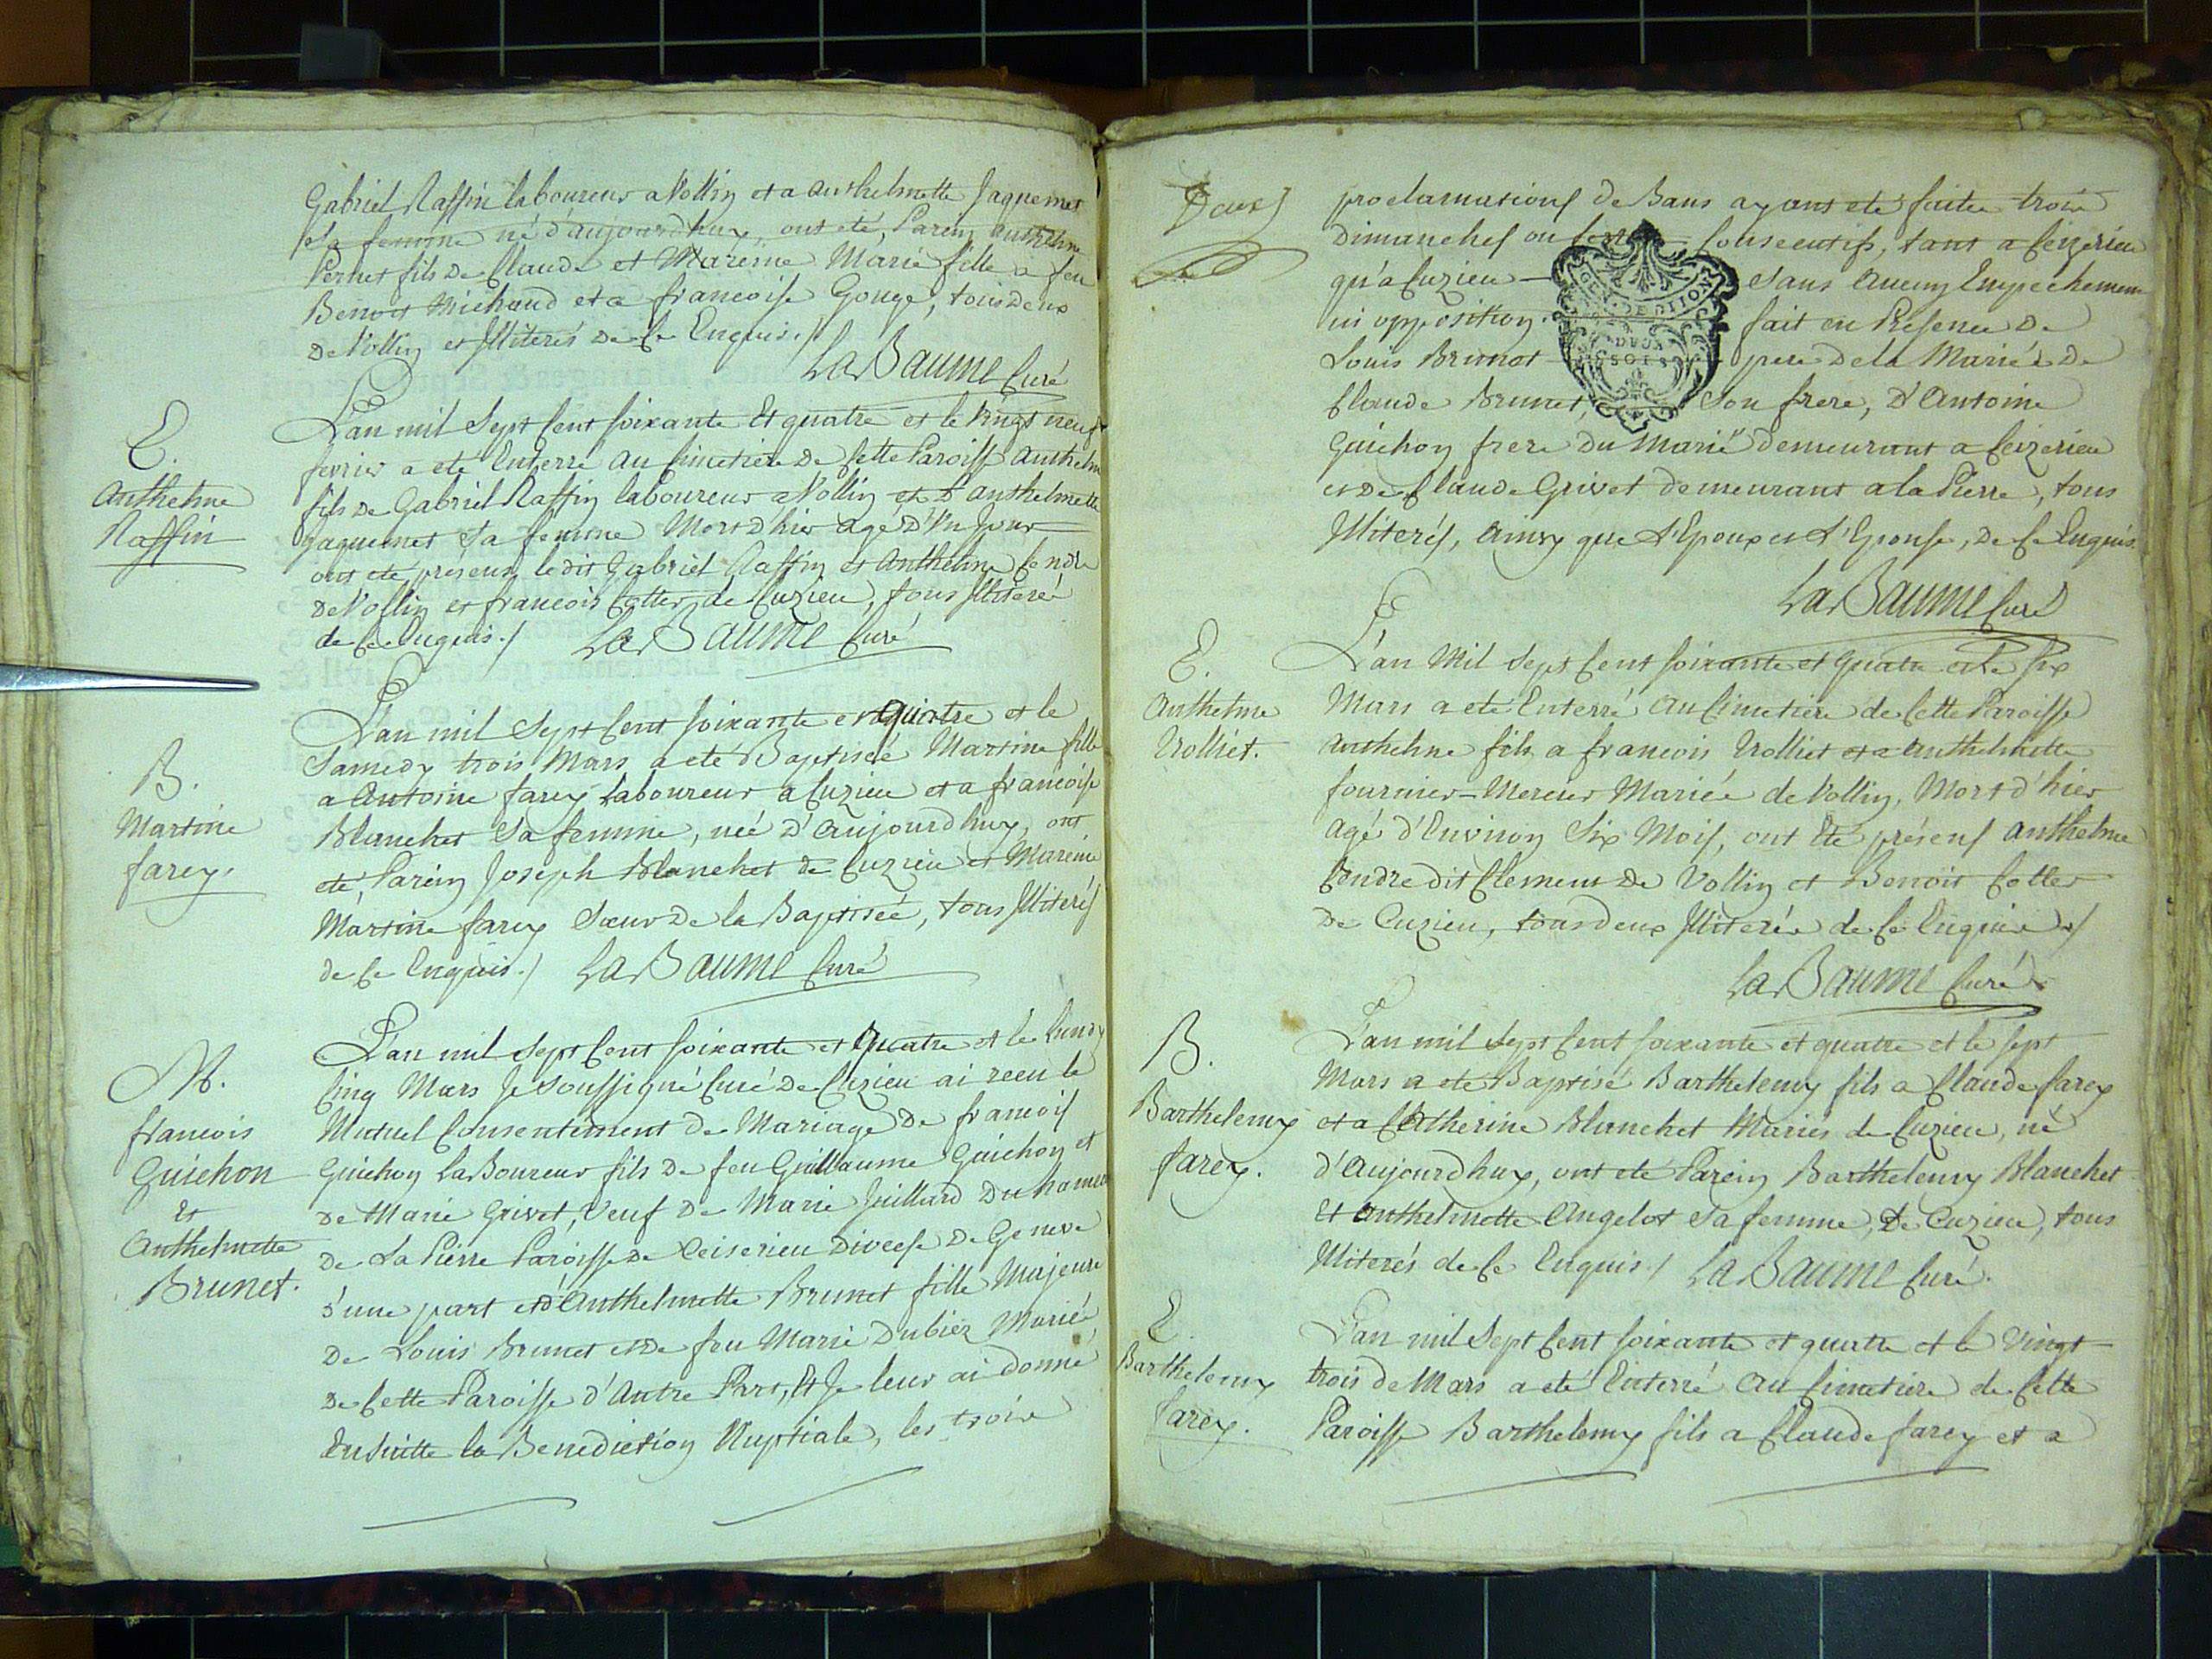 Gabriel Raffin laboureur a Vollin et a anthelmette Jaquemet
Sa femme né d'aujourdhuy, ont eté, Parein anthelme
Pernet fils de Claude et Mareine Marie fille a feu
Benoit Michaud et a francoise Gouge, tous deux
de Vollin et Illiterés de ce Enquis./
LaBaume Curé
E.
anthelme
Raffin
L'an mil Sept Cent Soixante Et quatre et le vingt neuf
fevrier a eté Enterré au Cimetiere de Cette Paroisse anthelme
fils de Gabriel Raffin laboureur a Vollin et d'anthelmette
Jaquemet Sa femme Mort d'hier agé d'un Jour
ont eté présens, ledit Gabriel Raffin et anthelme Cendre
de Vollin et francois Cotter de Cuzieu, tous Illiterés
de ce Enquis./ LaBaume Curé
B.
Martine
farey.
L'an mil Sept Cent Soixante et quatre et le
Samedy trois Mars a eté Baptisée Martine fille
a Antoine farey Laboureur a Cuzieu et a francoise
Blanchet Sa femme, née d'aujourdhuy, ont
eté, Parein Joseph Blanchet de Cuzieu et Mareine
Martine farey Sœur de la Baptisée, tous Illiterés
de ce Enquis./ LaBaume Curé
M.
francois
Guichon
Et
Anthelmette
Brunet.
L'an mil Sept Cent Soixante et Quatre et le Lundy
Cinq Mars Je Soussigné Curé de Cuzieu ai recu le
Mutuel Consentement de Mariage de francois
Guichon Laboureur fils de feu Guillaume Guichon et
de Marie Grivet, Veuf de Marie Juillard Du hameau
de La Pierre Paroisse de Ceiserieu Diocese de Geneve
d'une part et d'Anthelmette Brunet fille Majeure
de Louis Brunet et de feu Marie Dubiez Mariés
de Cette Paroisse d'Autre Part, Et Je leur ai donné
Ensuitte la Benediction Nuptiale, les trois
proclamations de Bans ayant eté faites trois
Dimanches ou festes Consecutifs, tant a Ceizerieu
qu'a Cuzieu Sans Aucun Empechement
ni opposition. fait en Presence de
Louis Brunet pere de la Mariée de
Claude Brunet, Son frere, d'Antoine
Guichon frere du Marié demeurant a Ceizerieu
et de Claude Grivet demeurant a la Pierre, tous
Illiterés, ainsy que L'Epoux et L'Epouse, de ce Enquis.
GEN. DE DIJON
DEUX
SOLS
LaBaume Curé
E.
Anthelme
Trolliet.
L'an Mil Sept Cent Soixante et quatre et le Six
Mars a eté Enterré au Cimetiere de Cette Paroisse
Anthelme fils a francois Trolliet et a Anthelmette
fournier-Mercier Mariés de Vollin, Mort d'hier
agé d'Environ Six Mois, ont Eté présens Anthelme
Cendre dit Clement de Vollin et Benoit Cotter
de Cuzieu, tous deux Illiterés de ce Enquis ./
LaBaume Curé
B.
Barthelemy
farey.
L'an mil Sept Cent Soixante et quatre et le Sept
Mars a eté Baptisé Barthelemy fils a Claude farey
et a Catherine Blanchet Mariés de Cuzieu, né
d'Aujourdhuy, ont eté Parein Barthelemy Blanchet
Et Anthelmette Angelot Sa femme, de Cuzieu, tous
Illiterés de ce Enquis / LaBaume Curé.
E.
Barthelemy
farey.
L'an mil Sept Cent Soixante et quatre et le Vingt
trois de Mars a eté Enterré au Cimetiere de Cette
Paroisse Barthelemy fils a Claude farey et a